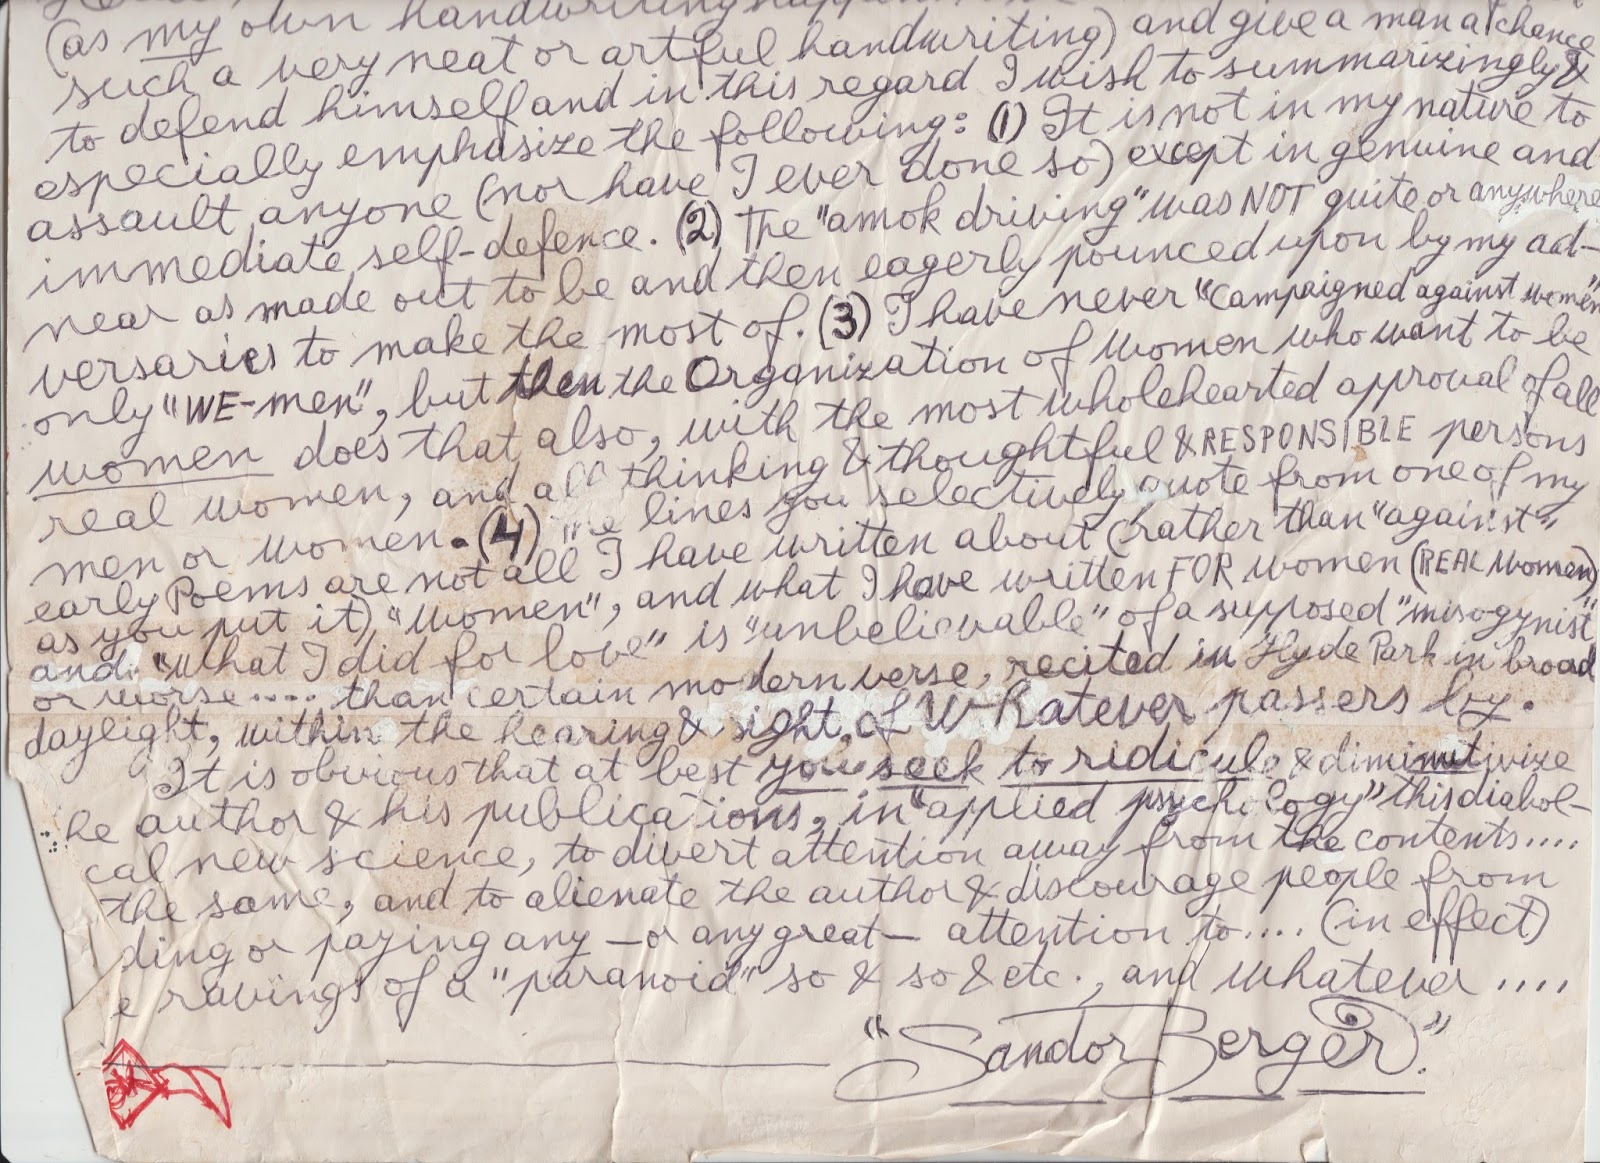 (as my own handwriting
such a very neat or artful handwriting) and give a man a chance
to defend himself and in this regard I wish to summarizingly &
especially emphasize the following: (1) It is not in my nature to
assault anyone (nor have I ever done so) except in genuine and
immediate self-defence. (2) The "amok driving" was NOT quite or anywhere
near as made out to be and then eagerly pounced upon by my ad-
versaries to make the most of. (3) I have never "campaigned against women"
only "WE-men", but then the Organization of women who want to be
women does that also, with the most wholehearted approval of all
real women, and all thinking & thoughtful & RESPONSIBLE persons
men or women. (4) The lines you selectively quote from one of my
early Poems are not all I have written about (rather than "against"
as you put it) "women", and what I have written FOR women (REAL women)
and "What I did for love" is "unbelievable" of a supposed "misogynist"
or worse.... than certain modern verse, recited in Hyde Park in broad
daylight, within the hearing & sight, of Whatever passers by.
It is obvious that at best you seek to ridicule & diminutivize
he author & his publications, in "applied psychology" this diabol-
cal new science, to divert attention away from the contents....
the same, and to alienate the author & discourage people from
ding or paying any — or any great — attention to.... (in effect)
e ravings of a "paranoid" so & so & etc., and whatever ....
"Sandor Berger."